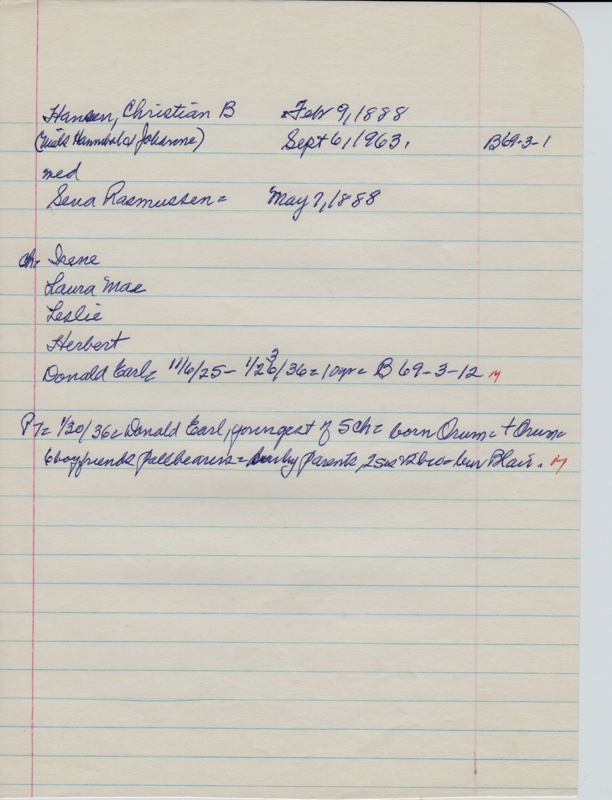 Hansen, Christian B Feb 9, 1888
(Niels Hannibal & Johanne) Sept 6, 1963, B69-3-1
med
Sena Rasmussen = May 7, 1888
ch = Irene
Laura Mae
Leslie
Herbert
Donald Earl = 11/6/25 - 1/23/36 = 10yr = B 69-3-12 M
PT = 1/30/36 = Donald Earl, youngest of 5 ch = born Orum = + Orum =
6 boyfriends pallbearers = sur by parents, 2 sis & 2 bro = bur Blair. M